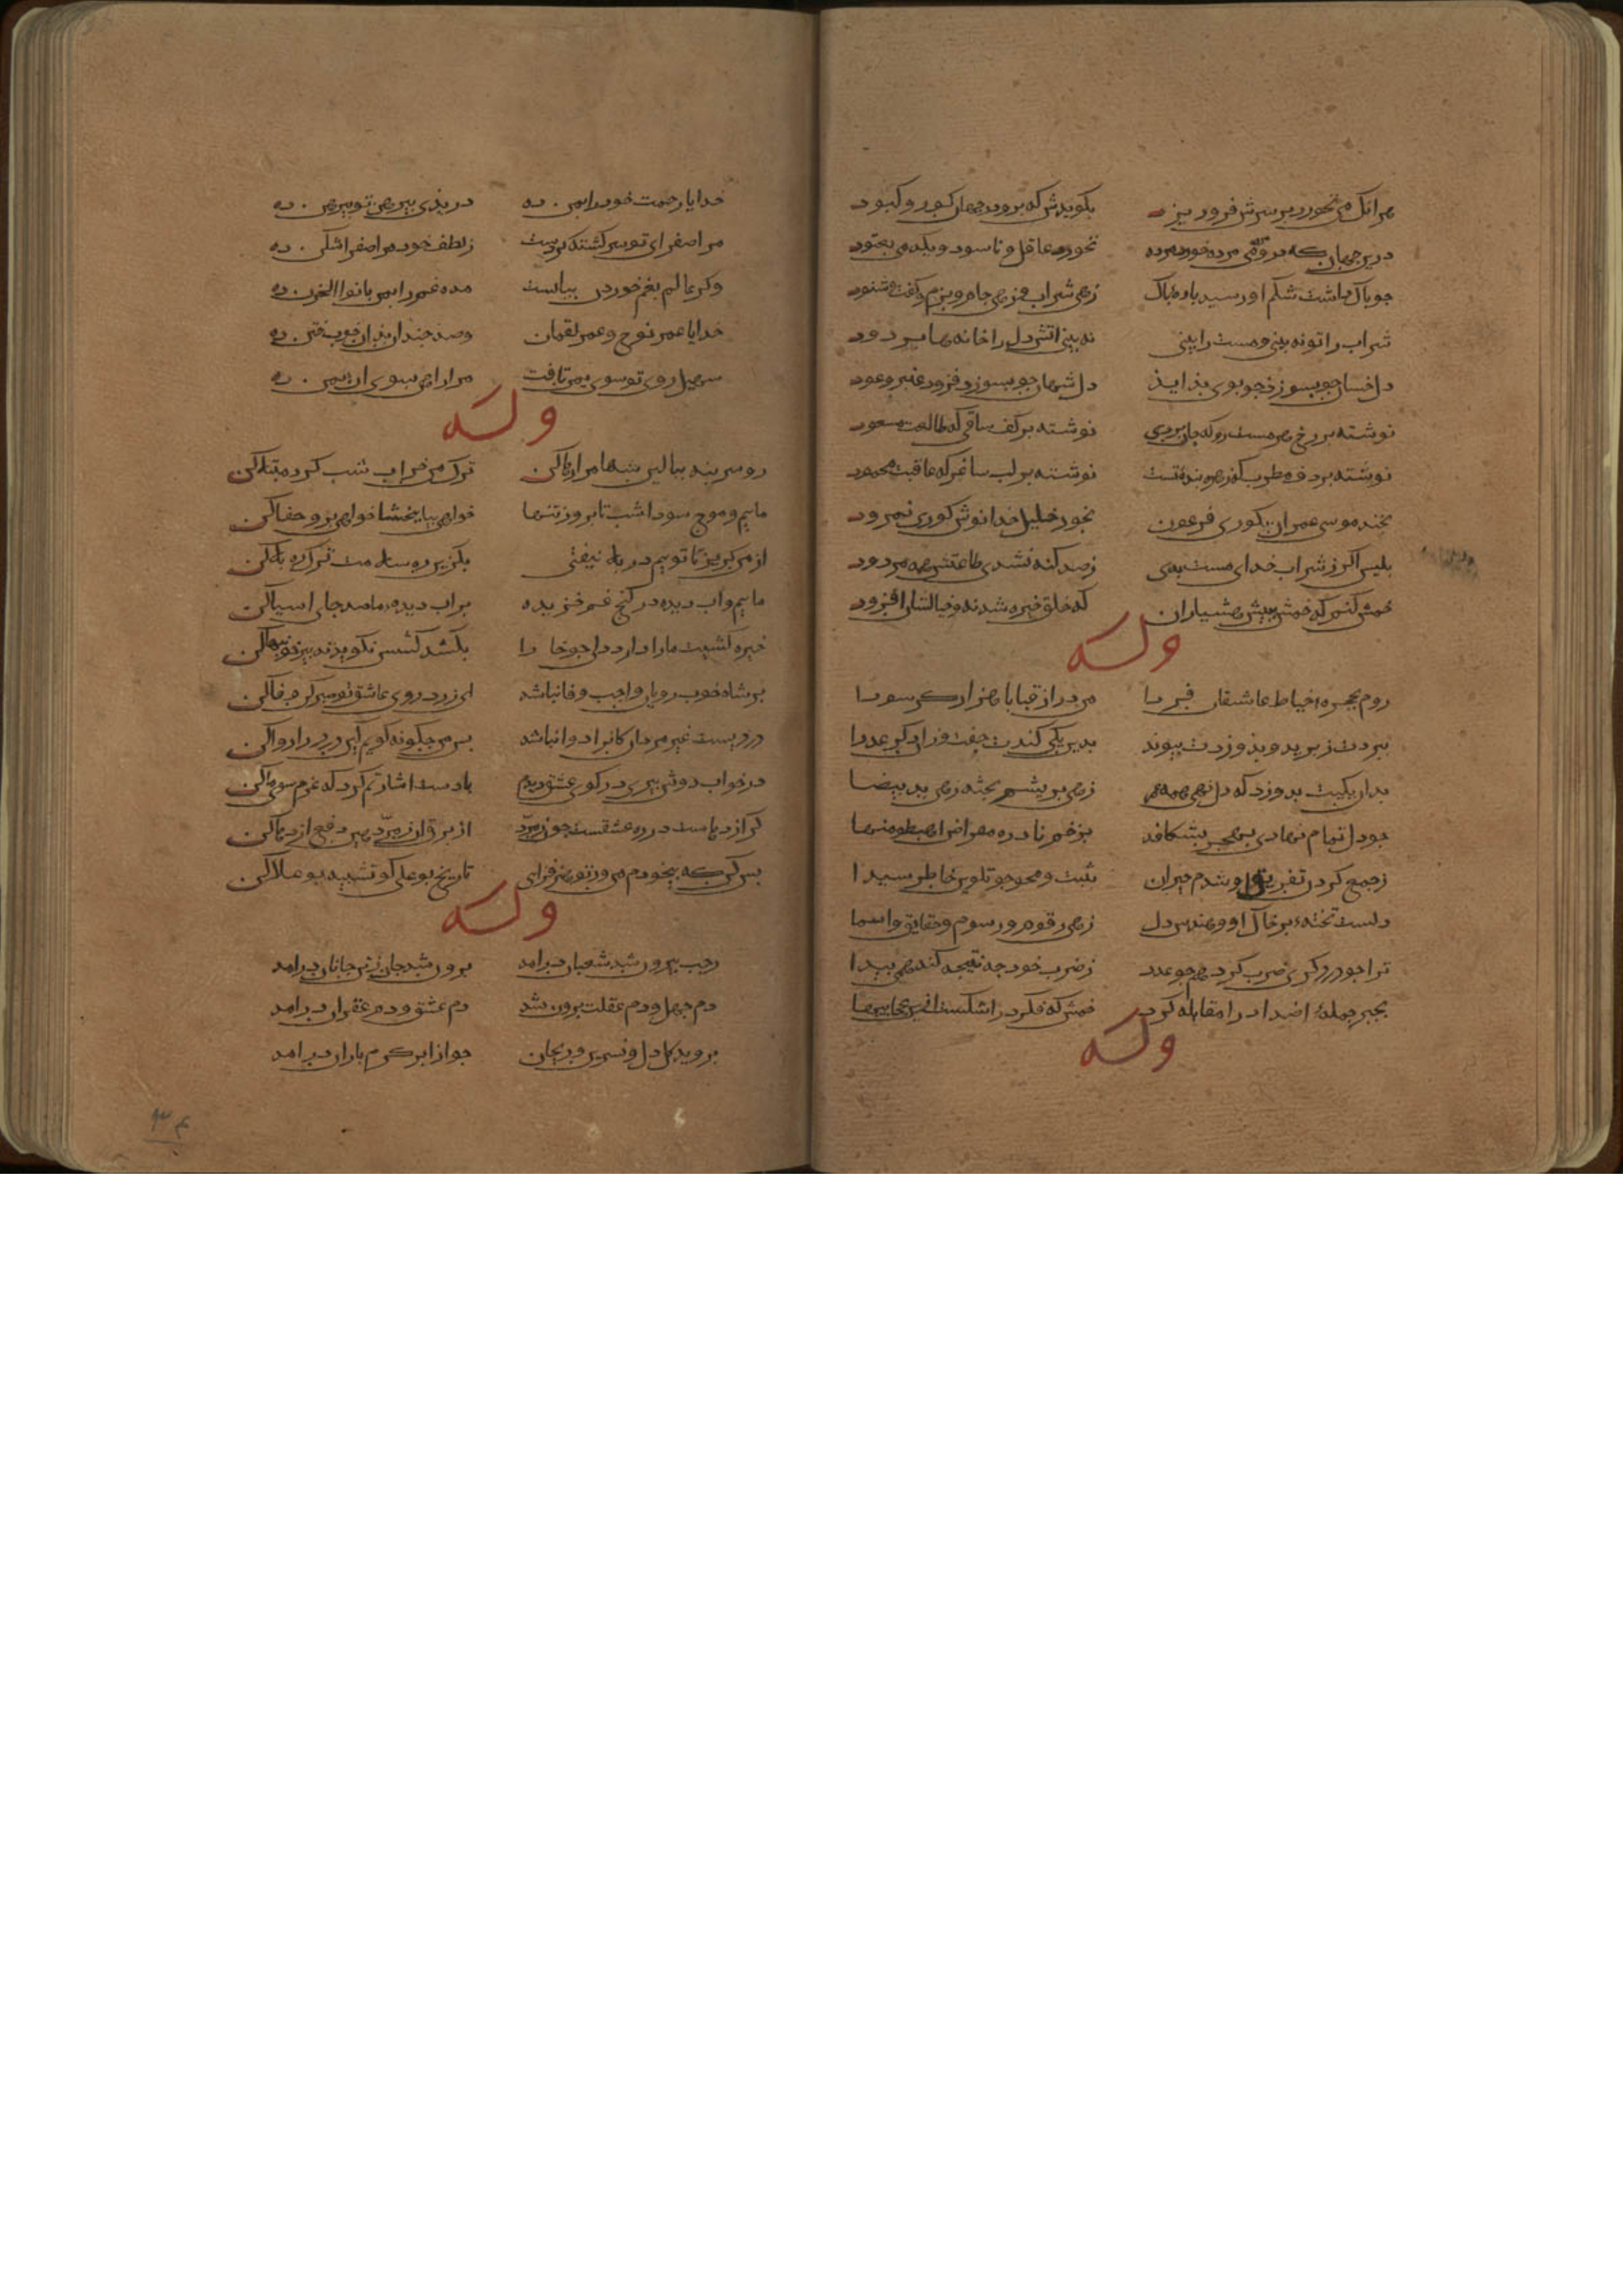 هرانک می نخورد بر سرش فرو ریزد بکویدش که برو در جهان کور و کبود
درین جهان که درو مرده می خورد مرده نخورد عاقل و ناسود و یکدمی نغنود
جو باک داشت شکم او رسید باده باک زهی شراب و زهی جام و بزم و کفت و شنود
شراب را تو نه بینی و مست را بینی نه بینی اتش دل را خانه ها بر دود
دل خسان جو بسوزد جه بوی بد ایذ دل شهان جو بسوزد فزود عنبر و عود
نوشته بر رخ هر مست رو که جان بردی نوشته بر کف ساقی که طالعت مسعود
نوشته بر دف مطرب که زهره بنده تست نوشته بر لب ساغر که عاقبت محمود
بخند موسی عمران بکوری فرعون بخور خلیل خدا نوش کوری نمرود
بلیس اکر ز شراب خدای مست بدی ز صد کنه نشدی طاعتش همه مردود
خمش کنم که خمش بیش هشیاران که خلق خیره شدند و خیالشان افزود
وله
روم بحجره خیاط عاشقان فردا من دراز قبا با هزار کز سودا
ببردت ز یزید و بدوزدت بیوند بدین یکی کندت جفت وزان دکر عذرا
بدان یکیت بدوزد که دل نهی همه عمر زهی بریشم و بخیه زهی ید بیضا
جو دل تمام نهادی ز هجر بشکافد بزخم نادره مقراض اهبطوا منها
ز جمع کردن و تفریق او شدم حیران بثبت و محو جو تلوین خاطر سیدا
دلست تخته بر خاک او مهندس دل زهی رقوم و رسوم و حقایق و اسما
ترا جو در دکری ضرب کرد همجو عدد ز ضرب خود جه نتیجه کند همی بیدا
بجبر جمله اضداد را مقابله کرد خمش که فکر در اشکست ازین عجایبها
وله
خدایا رحمت خود را بمن ده دریدی بیرهن تو بیرهن ده
مرا صفرای تو سرکشته کردست ز لطف خود مرا صفراشکن ده
وکر عالم بغم خوردن بباست مده غم را بمن با بوالحزن ده
خدایا عمر نوح و عمر لقمان وصد جندان بدان خوب ختن ده
سهیل روی تو سوی یمن تافت مرا راهی بسوی ان یمن ده
وله
رو سر بنه ببالین تنها مرا رها کن ترک من خراب شب کرد مبتلا کن
ماییم و موج سودا شب تا بروز تنها خواهی بیا ببخشا خواهی برو جفا کن
از من کریز تا تو هم در بلا نیفتی بکزین ره سلامت ترک ره بلا کن
ماییم و اب دیده در کنج غم خزیده بر اب دیده ما صد جای اسیا کن
خیره کشیست ما را دارد دلی جو خارا بکشد کسش نکوید تدبیر خونبها کن
بر شاه خوب رویان واجب وفا نباشد ای زرد روی عاشق تو صبر کن وفا کن
دردیست غیر مردن کانرا دوا نباشد بس من جکونه کویم کین درد را دوا کن
در خواب دوش بیری در کوی عشق دیدم با دست اشارتم کرد که عزم سوی ما کن
کر اژدهاست در ره عشقست جون زمرد از برق ان زمرد هین دفع اژدها کن
بس کن که بیخودم من ور تو هنر فزایی تاریخ بوعلی کو تنبیه بوعلا کن
وله
رجب بیرون شد شعبان درامد برون شد جان ز تن جانان درامد
دم جهل و دم غفلت برون شد دم عشق و دم غفران درامد
بروید کل دل و نسرین و ریحان جو از ابر کرم باران درامد